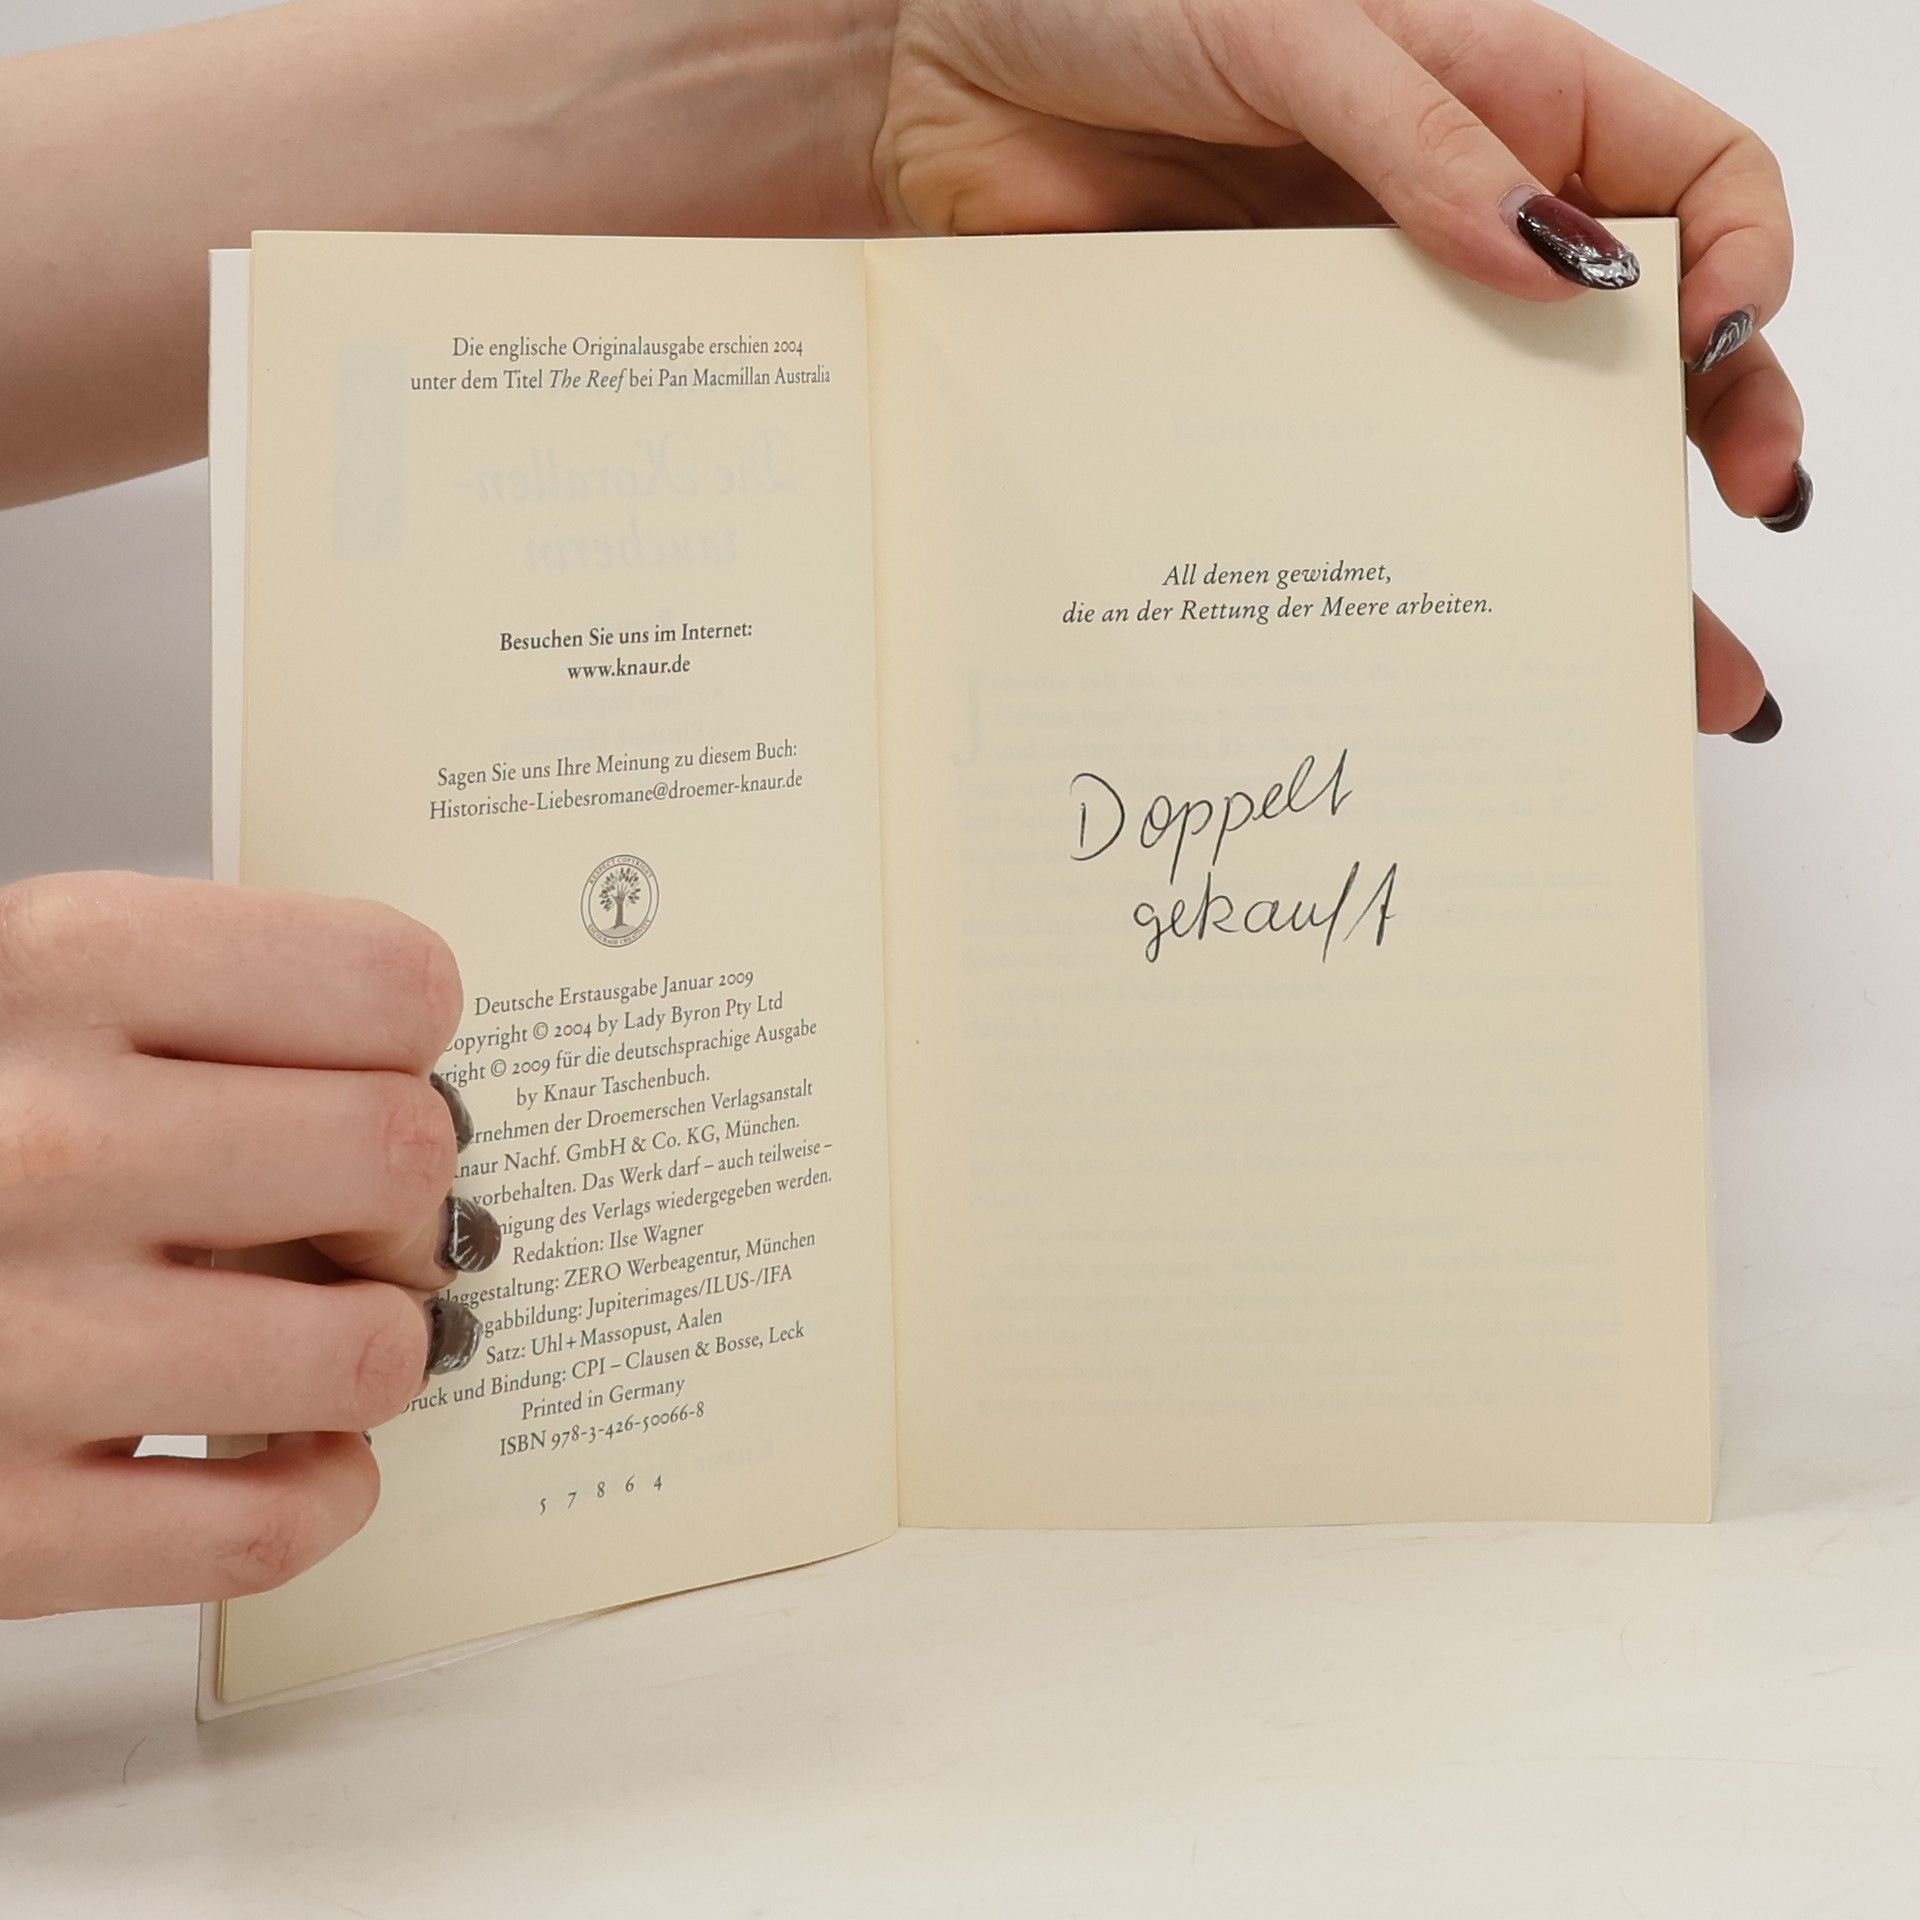 Die englische Originalausgabe erschien 2004
unter dem Titel The Reef bei Pan Macmillan Australia
Die Korallen-
taucherin
Besuchen Sie uns im Internet:
www.knaur.de
Sagen Sie uns Ihre Meinung zu diesem Buch:
Historische-Liebesromane@droemer-knaur.de
RESPECT COPYRIGHT
ENCOURAGE CREATIVITY
Deutsche Erstausgabe Januar 2009
opyright © 2004 by Lady Byron Pty Ltd
right © 2009 für die deutschsprachige Ausgabe
by Knaur Taschenbuch.
ernehmen der Droemerschen Verlagsanstalt
naur Nachf. GmbH & Co. KG, München.
vorbehalten. Das Werk darf – auch teilweise –
nigung des Verlags wiedergegeben werden.
Redaktion: Ilse Wagner
laggestaltung: ZERO Werbeagentur, München
gabbildung: Jupiterimages/ILUS-/IFA
Satz: Uhl + Massopust, Aalen
ruck und Bindung: CPI – Clausen & Bosse, Leck
Printed in Germany
ISBN 978-3-426-50066-8
5 7 8 6 4
All denen gewidmet,
die an der Rettung der Meere arbeiten.
Doppelt
gekauft